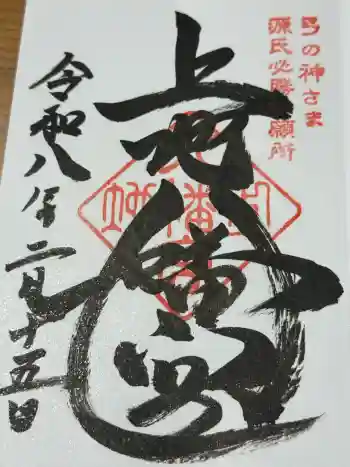 弓の神さま
源氏必勝祈願所
上地八幡宮
令和八年二月十五日